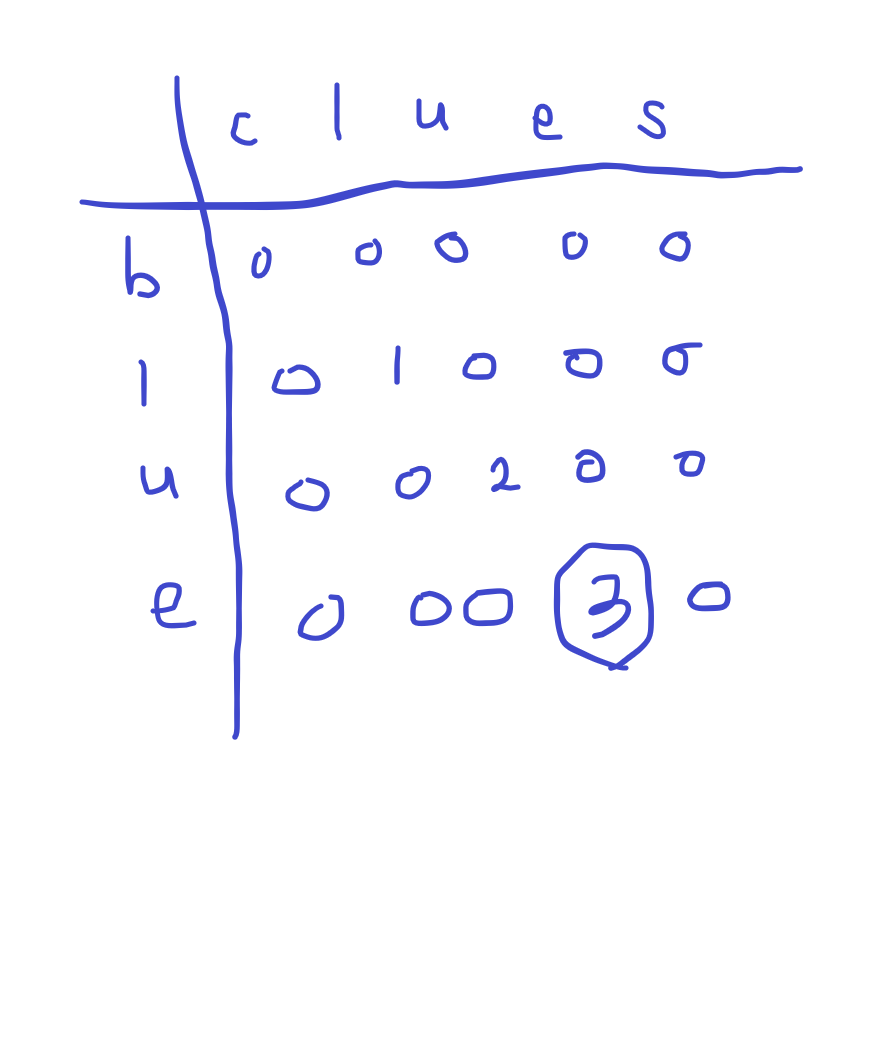 c l u e s
b 0 0 0 0 0
l 0 1 0 0 0
u 0 0 2 0 0
e 0 0 0 3 0